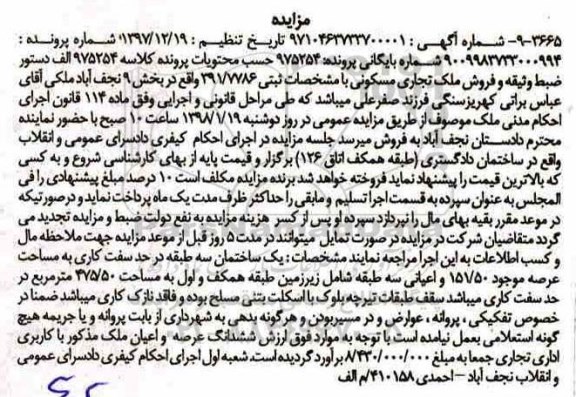 مزایده
۹-۳۶۶۵- شماره آگهی : ۹۷۱۰۴۶۳۷۳۳۷۰۰۰۰۱ تاریخ تنظیم : ۱۳۹۷/۱۲/۱۹ شماره پرونده :
۹۰۰۹۹۸۳۷۳۳۰۰۰۹۹۴ شماره بایگانی پرونده: ۹۷۵۲۵۴ حسب محتویات پرونده کلاسه ۹۷۵۲۵۴ الف دستور
ضبط وثیقه و فروش ملک تجاری مسکونی با مشخصات ثبتی ۳۹۱/۷۷۸۶ واقع در بخش ۹ نجف آباد ملکی آقای
عباس براتی کهریزسنگی فرزند صفرعلی میباشد که طی مراحل قانونی و اجرایی وفق ماده ۱۱۴ قانون اجرای
احکام مدنی ملک موصوف از طریق مزایده عمومی در روز دوشنبه ۱۳۹۸/۱/۱۹ ساعت ۱۰ صبح با حضور نماینده
محترم دادستان نجف آباد به فروش میرسد جلسه مزایده در اجرای احکام کیفری دادسرای عمومی و انقلاب
واقع در ساختمان دادگستری (طبقه همکف اتاق ۱۲۶) برگزار و قیمت پایه از بهای کارشناسی شروع و به کسی
که بالاترین قیمت را پیشنهاد نماید فروخته خواهد شد برنده مزایده مکلف است ۱۰ درصد مبلغ پیشنهادی را فی
المجلس به عنوان سپرده به قسمت اجرا تسلیم و مابقی را حداکثر ظرف مدت یک ماه پرداخت نماید و درصورتیکه
در موعد مقرر بقیه بهای مال را نپردازد سپرده او پس از کسر هزینه مزایده به نفع دولت ضبط و مزایده تجدید می
گردد متقاضیان شرکت در مزایده در صورت تمایل میتوانند در مدت ۵ روز قبل از موعد مزایده جهت ملاحظه مال
و کسب اطلاعات به این اجرا مراجعه نمایند مشخصات : یک ساختمان سه طبقه در حد سفت کاری به مساحت
عرصه موجود ۱۵۱/۵۰ و اعیانی سه طبقه شامل زیرزمین طبقه همکف و اول به مساحت ۴۷۵/۵۰ مترمربع در
حد سفت کاری میباشد سقف طبقات تیرچه بلوک با اسکلت بتنی مسلح بوده و فاقد نازک کاری میباشد ضمنا در
خصوص تفکیکی ، پروانه ، عوارض و در مسیربودن و هرگونه بدهی به شهرداری از بابت پروانه و یا جریمه هیچ
گونه استعلامی بعمل نیامده است با توجه به موارد فوق ارزش ششدانگ عرصه و اعیان ملک مذکور با کاربری
اداری تجاری جمعا به مبلغ ۸/۴۳۰/۰۰۰/۰۰۰ برآورد گردیده است. شعبه اول اجرای احکام کیفری دادسرای عمومی
و انقلاب نجف آباد – احمدی ۴۱۰۱۵۸/م الف